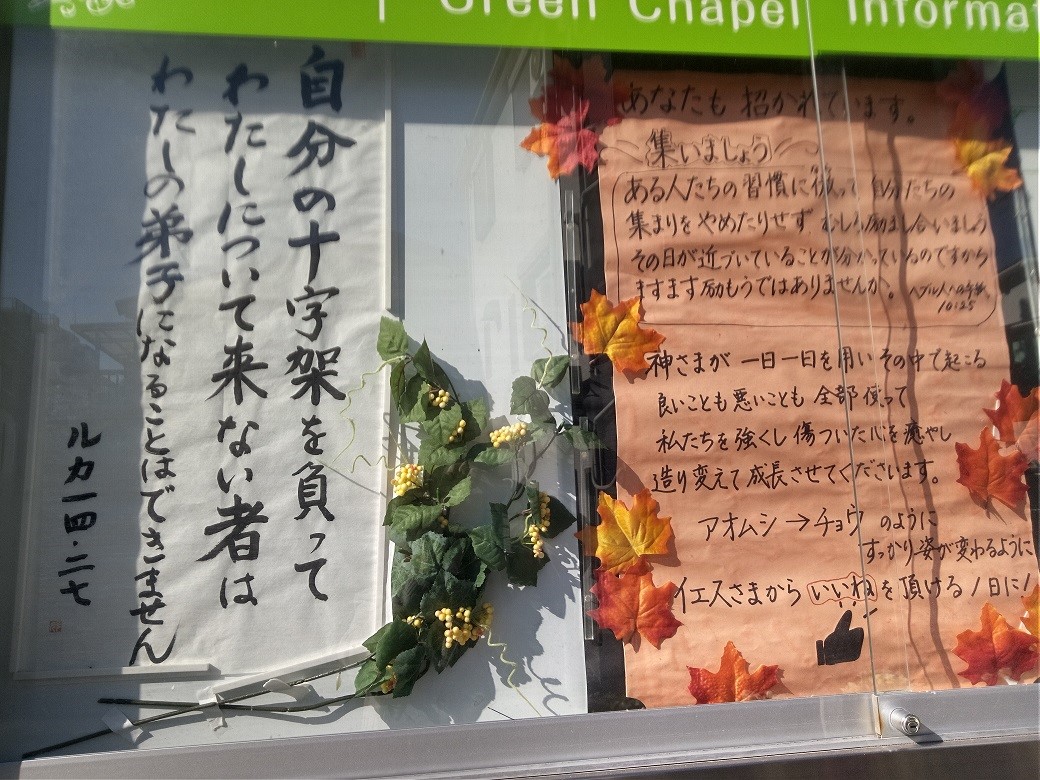 Green Chapel Informat
自分の十字架を負って
わたしについて来ない者は
わたしの弟子になることはできません
ルカ一四・二七
あなたも招かれています。
集いましょう
ある人たちの習慣に倣って自分たちの
集まりをやめたりせず むしろ励まし合いましょう
その日が近づいていることが分かっているのですから
ますます励もうではありませんか。 ヘブル人への手紙
10:25
神さまが 一日一日を用い その中で起こる
良いことも悪いことも 全部使って
私たちを強くし 傷ついた心を癒やし
造り変えて成長させてくださいます。
アオムシ→チョウ のように
すっかり姿が変わるように
イエスさまから いいね を頂ける1日に!